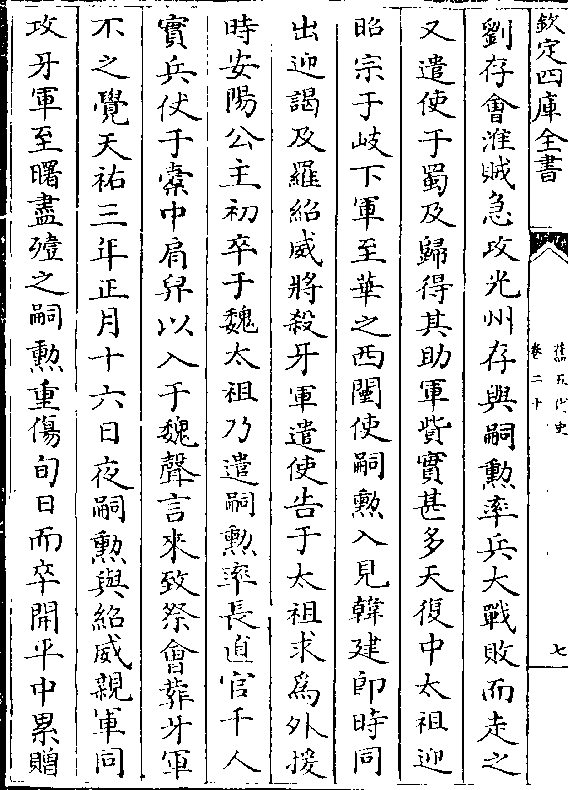 欽定四庫全書
舊五代史
卷二十
七
劉存會淮賊急攻光州存與嗣勲率兵大戰敗而走之
又遣使于蜀及歸得其助軍貲實甚多天復中太祖迎
昭宗于岐下軍至華之西闉使嗣勲入見韓建即時同
出迎謁及羅紹威將殺牙軍遣使告于太祖求為外援
時安陽公主初卒于魏太祖乃遣嗣勲率長直官千人
實兵仗于橐中肩舁以入于魏聲言來致祭會葬牙軍
不之覺天祐三年正月十六日夜嗣勲與紹威親軍同
攻牙軍至曙盡殪之嗣勲重傷旬日而卒開平中累贈